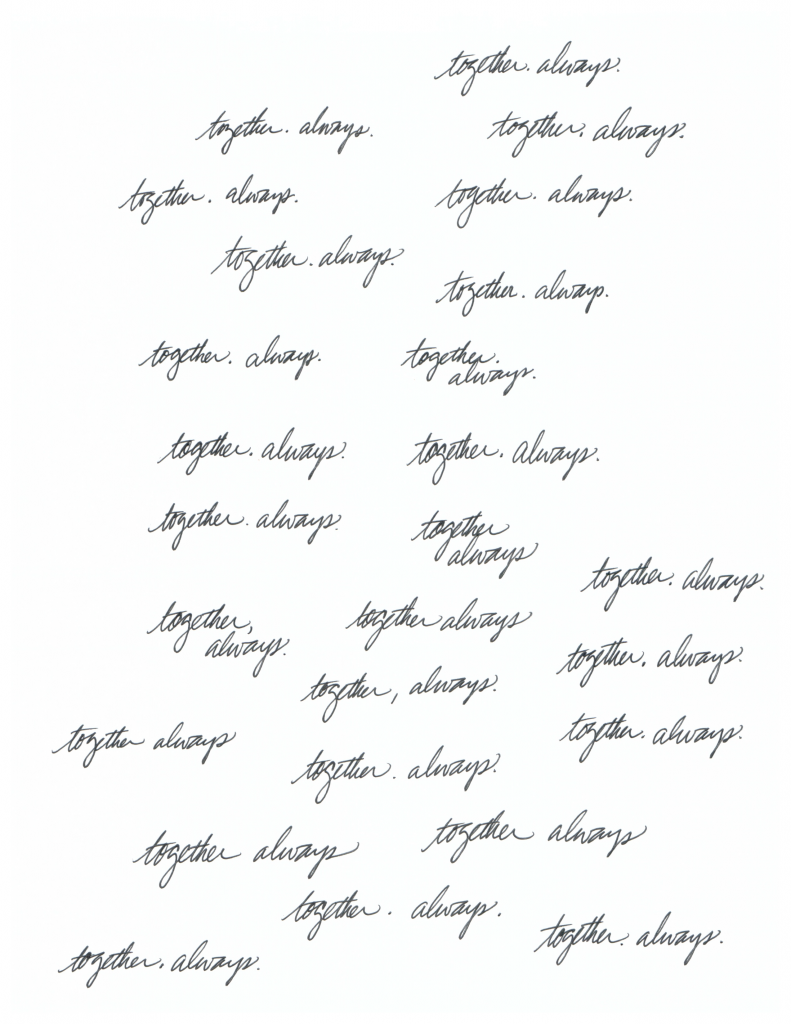 together. always.
together. always.
together. always.
together. always.
together. always.
together. always.
together. always.
together. always.
together.
always.
together. always.
together. always.
together. always.
together
always
together. always.
together,
always.
together always
together. always.
together, always.
together always
together. always.
together. always.
together always
together always
together. always.
together. always.
together. always.